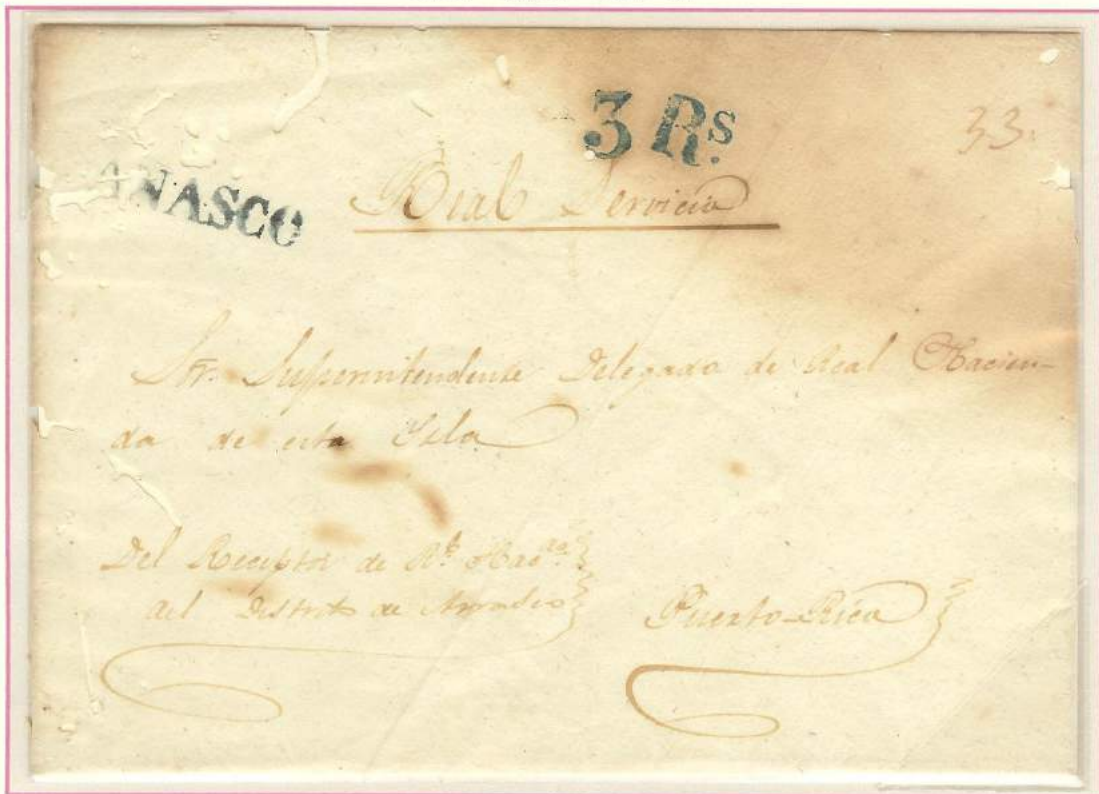 3 Rs.
33.
ANASCO
Real Servicio
Sr. Superintendente Delegado de Real Hacien-
da de esta Isla
Del Receptor de Rl. Hacda.
del Distrito de Añasco
Puerto-Rico